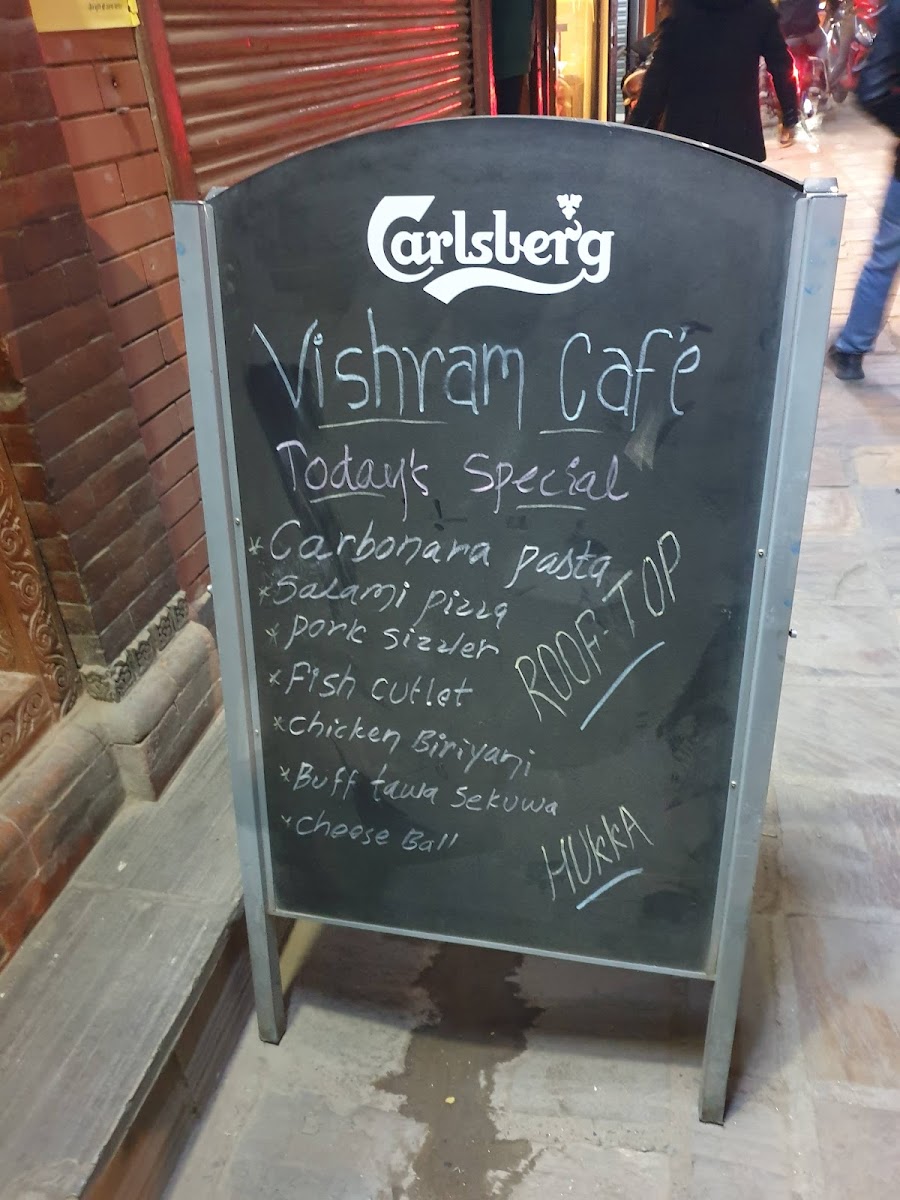 Carlsberg
Vishram Café
Today's Special
* Carbonara pasta
* Salami pizza
* Pork sizzler
* Fish cutlet
* Chicken Biriyani
* Buff tawa Sekuwa
* Cheese Ball
ROOF-TOP
HUKKA